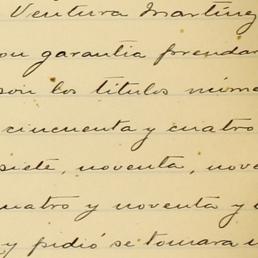 Ventura Martínez
con garantía prendar
son los títulos núme
cincuenta y cuatro
siete, noventa, nove
cuatro y noventa y
y pidió se tomara